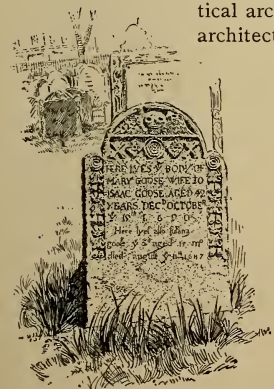 tical arc
architect
HERE LYES Yᵉ BODY OF
MARY GOOSE WIFE TO
ISAAC GOOSE AGED 42
YEARS DECᴰ OCTOBER
Yᵉ 1690
Here lyes also
goose yᵉ 3ᵈ aged 15 mᵒ
died august yᵉ 1687